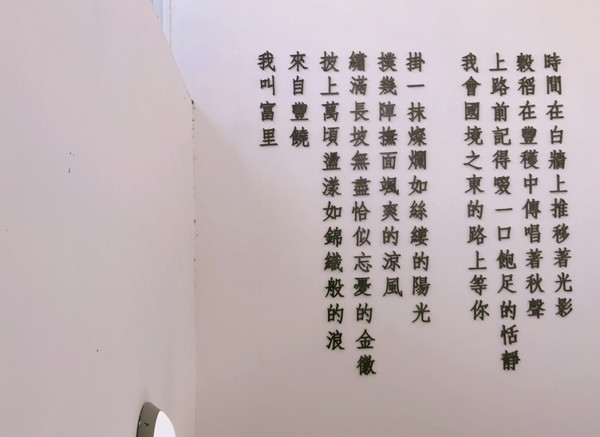 時間在白牆上推移著光影
穀稻在豐穫中傳唱著秋聲
上路前記得啜一口飽足的恬靜
我會國境之東的路上等你
掛一抹燦爛如絲縷的陽光
撲幾陣撫面颯爽的涼風
繡滿長坡無盡恰似忘憂的金徽
披上萬頃盪漾如錦織般的浪
來自豐饒
我叫富里